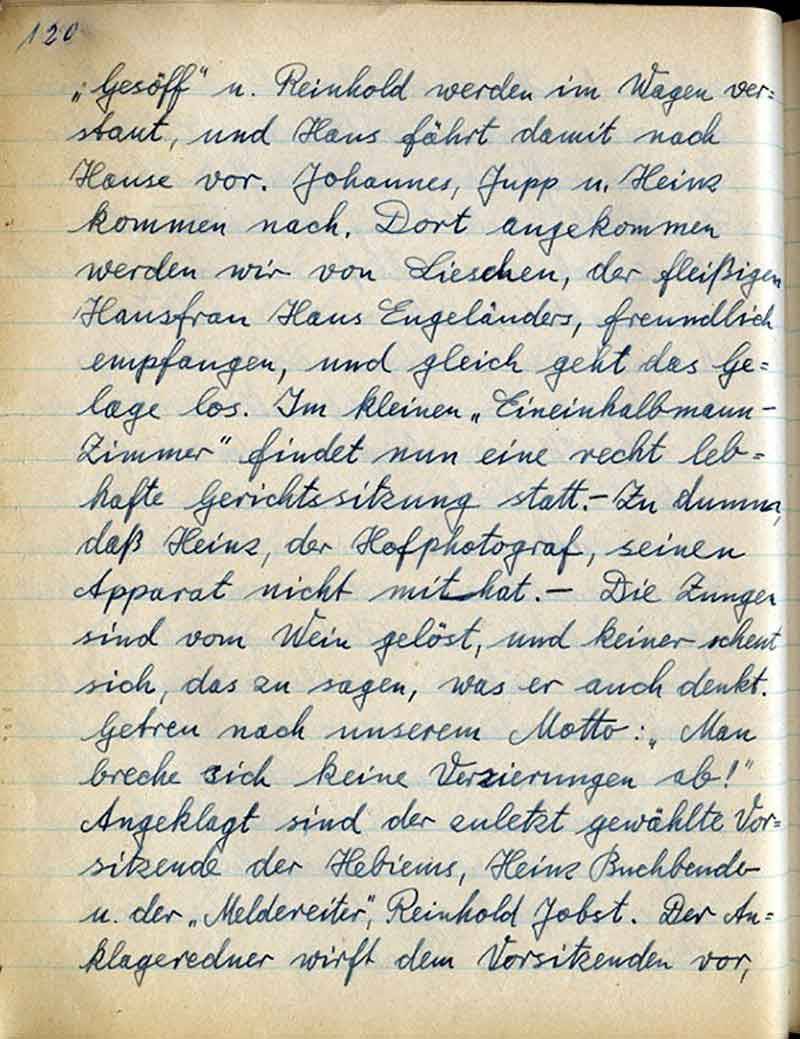 120
„Gesöff" u. Reinhold werden im Wagen ver=
staut, und Hans fährt damit nach
Hause vor. Johannes, Jupp u. Heinz
kommen nach. Dort angekommen
werden wir von Lieschen, der fleißigen
Hausfrau Hans Engeländers, freundlich
empfangen, und gleich geht das Ge=
lage los. Im kleinen „Eineinhalbmann-
Zimmer" findet nun eine recht leb=
hafte Gerichtssitzung statt.- Zu dumm,
daß Heinz, der Hofphotograf, seinen
Apparat nicht mit hat.- Die Zungen
sind vom Wein gelöst, und keiner scheut
sich, das zu sagen, was er auch denkt.
Getreu nach unserem Motto: „Man
breche sich keine Verzierungen ab!"
Angeklagt sind der zuletzt gewählte Vor=
sitzende der Hebiems, Heinz Buchbender
u. der „Meldereiter", Reinhold Jobst. Der An=
klageredner wirft dem Vorsitzenden vor,